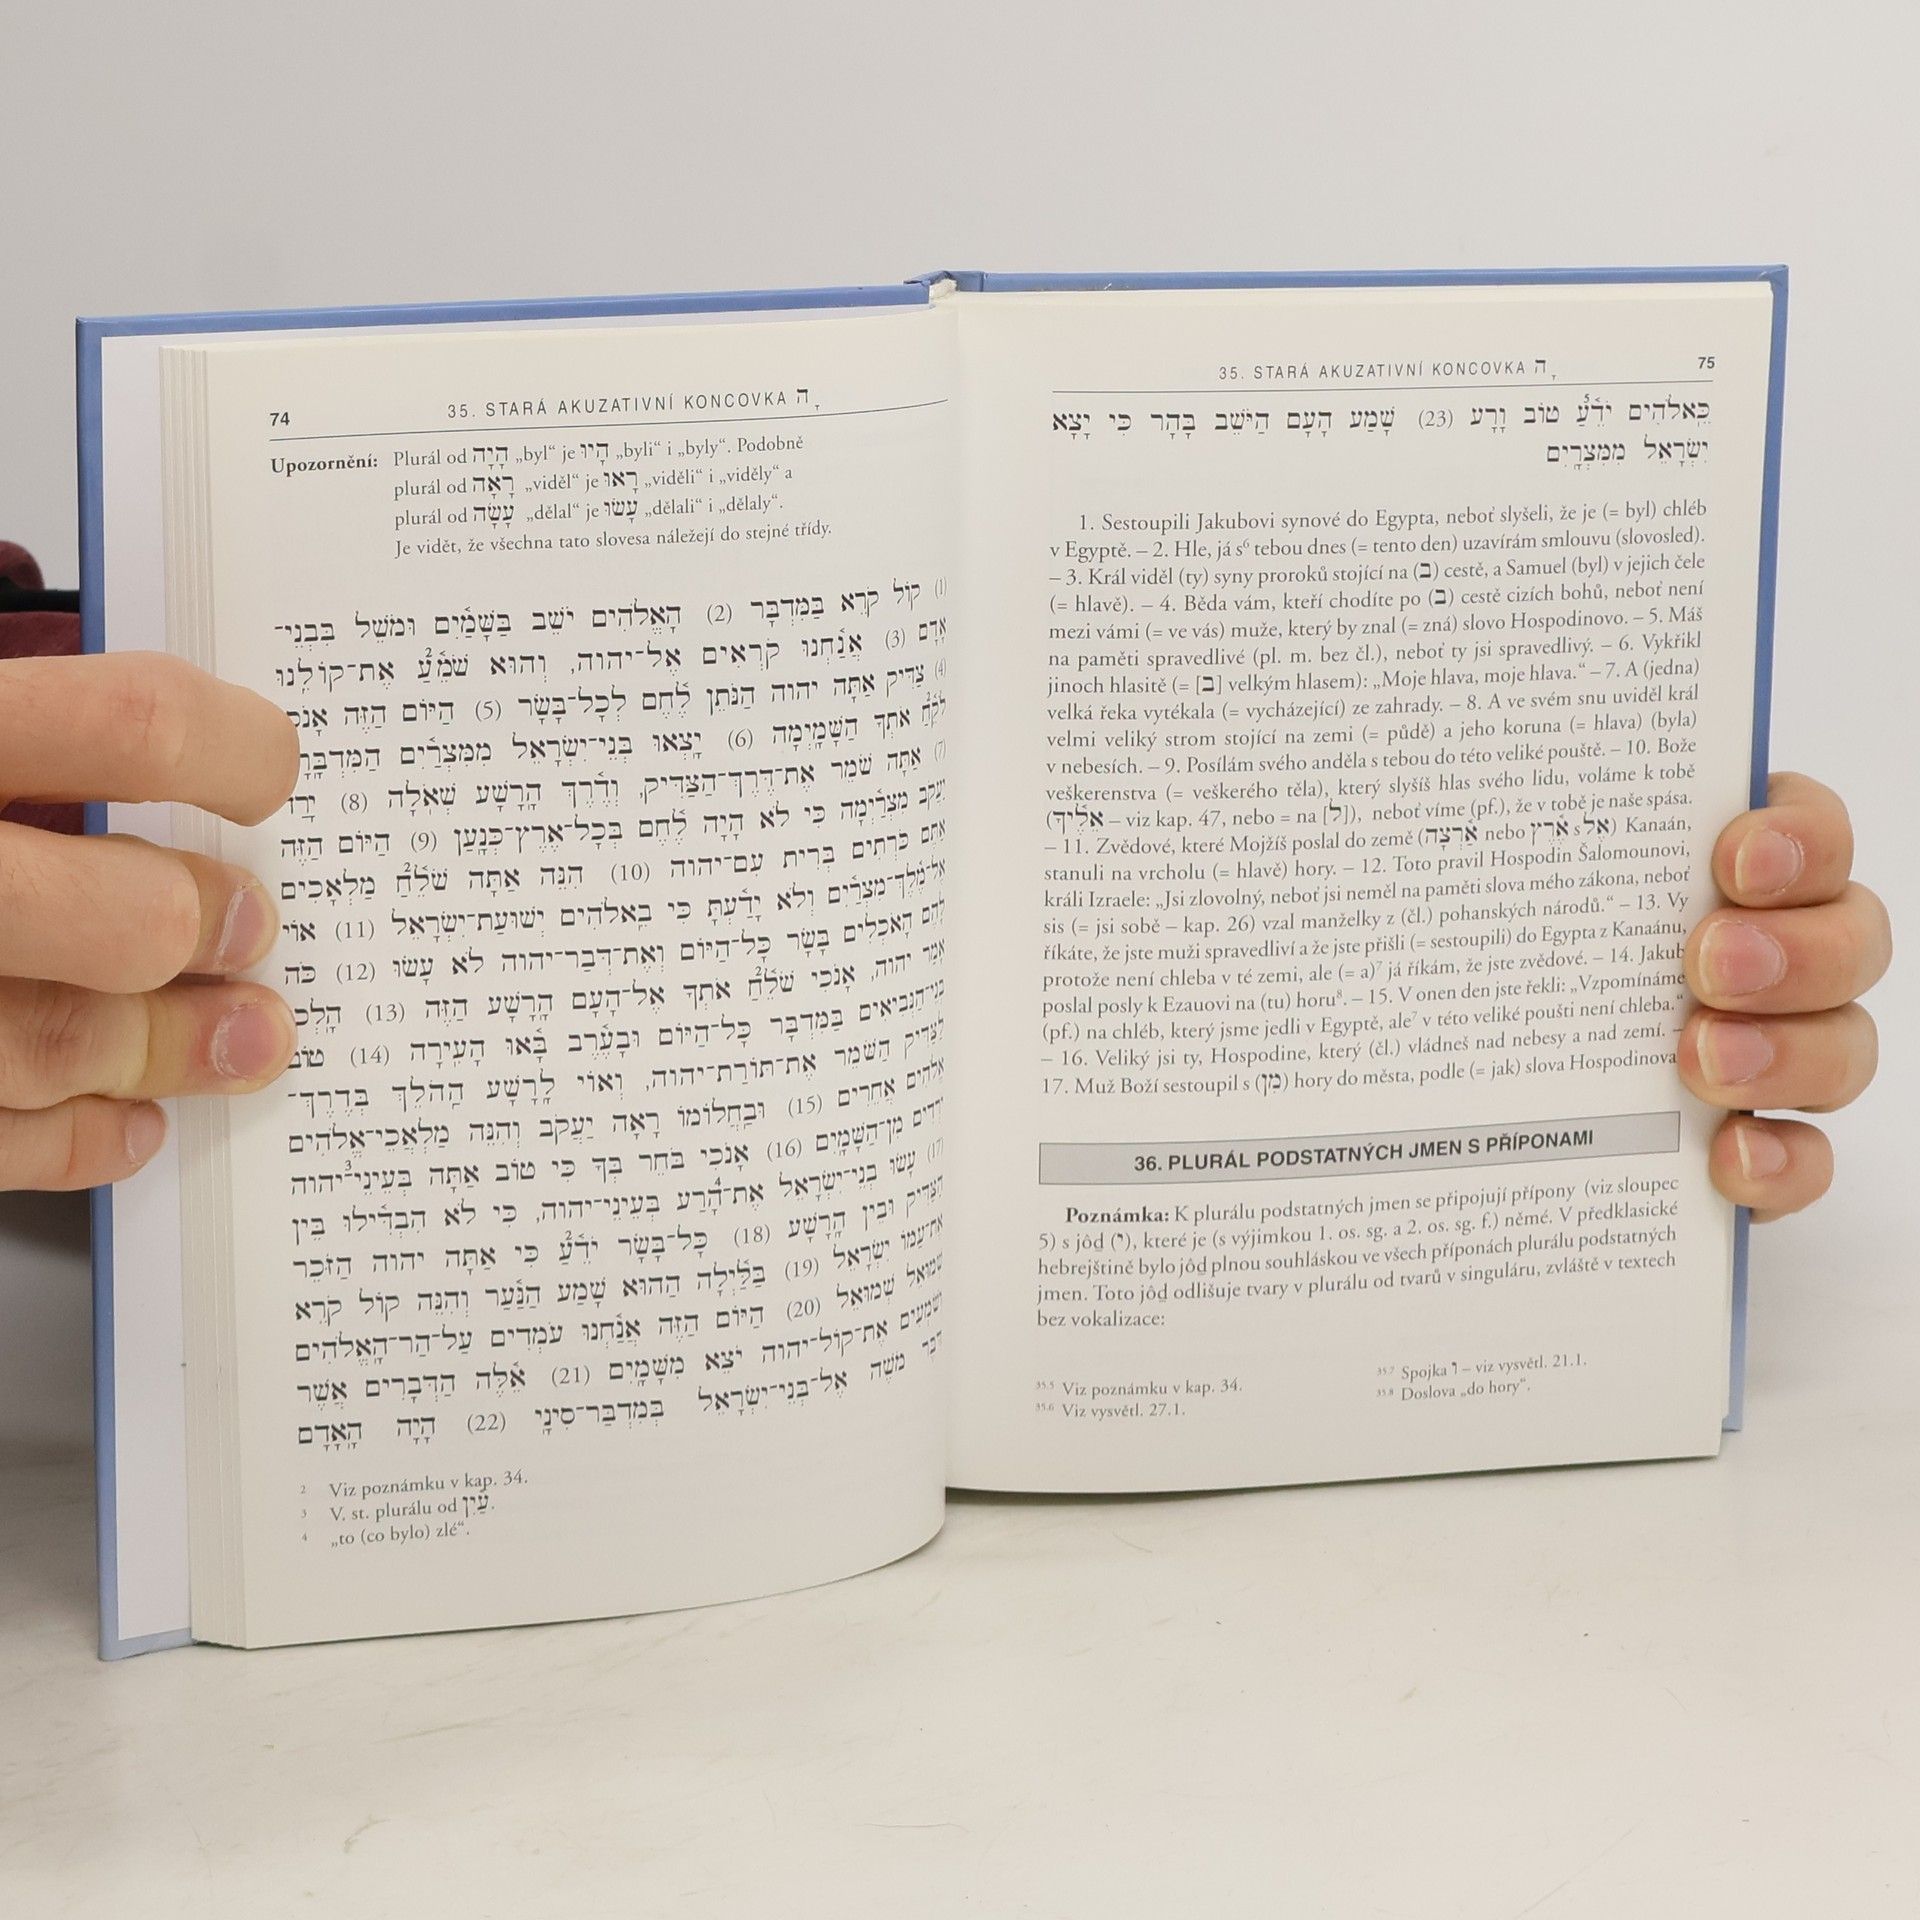 74
35. STARÁ AKUZATIVNÍ KONCOVKA הָ
Upozornění: Plurál od הָיָה „byl“ je הָיוּ „byli“ i „byly“. Podobně
plurál od רָאָה „viděl“ je רָאוּ „viděli“ i „viděly“ a
plurál od עָשָׂה „dělal“ je עָשׂוּ „dělali“ i „dělaly“.
Je vidět, že všechna tato slovesa náležejí do stejné třídy.
(1) קוֹל קֹרֵא בַּמִּדְבָּר (2) הָאֱלֹהִים יֹשֵׁב בַּשָּׁמַ֫יִם וּמֹשֵׁל בִּבְנֵי־
אָדָם (3) אֲנַ֫חְנוּ קֹרְאִים אֶל־יהוה, וְהוּא שֹׁמֵ֫עַ² אֶת־קוֹלֵ֫נוּ
(4) צַדִּיק אַתָּה יהוה הַנֹּתֵן לֶ֫חֶם לְכָל־בָּשָׂר (5) הַיּוֹם הַזֶּה
לֹקֵ֫חַ² אֹתְךָ הַשָּׁמָ֫יְמָה (6) יָצְאוּ בְּנֵי־יִשְׂרָאֵל מִמִּצְרַ֫יִם
(7) אַתָּה שֹׁמֵר אֶת־דֶּ֫רֶךְ־הַצַּדִּיק, וְדֶ֫רֶךְ הָרָשָׁע שְׁאֹ֫לָה (8)
יַעֲקֹב מִצְרַ֫יְמָה כִּי לֹא הָיָה לֶ֫חֶם בְּכָל־אֶ֫רֶץ־כְּנָ֫עַן (9) הַיּוֹם הַזֶּה
אַתֶּם כֹּרְתִים בְּרִית עִם־יהוה (10) הִנֵּה אַתָּה שֹׁלֵ֫חַ² מַלְאָכִים
אֶל־מֶ֫לֶךְ־מִצְרַ֫יִם וְלֹא יָדַ֫עְתָּ כִּי בֵאלֹהִים יְשׁוּעַת־יִשְׂרָאֵל (11) אוֹי
לָהֶם הָאֹכְלִים בָּשָׂר כָּל־הַיּוֹם וְאֶת־דְּבַר־יהוה לֹא עָשׂוּ (12) כֹּה
אָמַר יהוה, אָנֹכִי שֹׁלֵ֫חַ² אֹתְךָ אֶל־הָעָם הָרָשָׁע הַזֶּה (13)
בְּנֵי־הַנְּבִיאִים בַּמִּדְבָּר כָּל־הַיּוֹם וּבָעֶ֫רֶב בָּ֫אוּ הָעִ֫ירָה (14) טוֹב
לַצַּדִּיק הַשֹּׁמֵר אֶת־תּוֹרַת־יהוה, וְאוֹי לָרָשָׁע הַהֹלֵךְ בְּדֶ֫רֶךְ־
אֱלֹהִים אֲחֵרִים (15) וּבַחֲלוֹמוֹ רָאָה יַעֲקֹב וְהִנֵּה מַלְאֲכֵי־אֱלֹהִים
יֹרְדִים מִן־הַשָּׁמַ֫יִם (16) אָנֹכִי בֹּחֵר בְּךָ כִּי טוֹב אַתָּה בְּעֵינֵי³־יהוה
(17) עָשׂוּ בְּנֵי־יִשְׂרָאֵל אֶת־הָרַע⁴ בְּעֵינֵי־יהוה, כִּי לֹא הִבְדִּ֫ילוּ בֵּין
הַצַּדִּיק וּבֵין הָרָשָׁע (18) כָּל־בָּשָׂר יֹדֵ֫עַ² כִּי אַתָּה יהוה הַזֹּכֵר
אֶת־עַמּוֹ יִשְׂרָאֵל (19) בַּלַּ֫יְלָה הַהוּא שָׁמַע הַנַּ֫עַר וְהִנֵּה קוֹל קֹרֵא
שְׁמוּאֵל שְׁמוּאֵל (20) הַיּוֹם הַזֶּה אֲנַ֫חְנוּ עֹמְדִים עַל־הַר־הָאֱלֹהִים
וְשֹׁמְעִים אֶת־קוֹל־יהוה יֹצֵא מִשָּׁמַ֫יִם (21) אֵ֫לֶּה הַדְּבָרִים אֲשֶׁר
דִּבֶּר מֹשֶׁה אֶל־בְּנֵי־יִשְׂרָאֵל בְּמִדְבַּר־סִינָי (22) הָיָה הָאָדָם
2 Viz poznámku v kap. 34.
3 V. st. plurálu od עַ֫יִן.
4 „to (co bylo) zlé“.
35. STARÁ AKUZATIVNÍ KONCOVKA הָ
75
כֵּאלֹהִים יֹדֵ֫עַ⁵ טוֹב וָרָע (23) שָׁמַע הָעָם הַיֹּשֵׁב בָּהָר כִּי יָצָא
יִשְׂרָאֵל מִמִּצְרַ֫יִם
1. Sestoupili Jakubovi synové do Egypta, neboť slyšeli, že je (= byl) chléb
v Egyptě. – 2. Hle, já s⁶ tebou dnes (= tento den) uzavírám smlouvu (slovosled).
– 3. Král viděl (ty) syny proroků stojící na (בּ) cestě, a Samuel (byl) v jejich čele
(= hlavě). – 4. Běda vám, kteří chodíte po (בּ) cestě cizích bohů, neboť není
mezi vámi (= ve vás) muže, který by znal (= zná) slovo Hospodinovo. – 5. Máš
na paměti spravedlivé (pl. m. bez čl.), neboť ty jsi spravedlivý. – 6. Vykřikl
jinoch hlasitě (= [בּ] velkým hlasem): „Moje hlava, moje hlava.“ – 7. A (jedna)
velká řeka vytékala (= vycházející) ze zahrady. – 8. A ve svém snu uviděl král
velmi veliký strom stojící na zemi (= půdě) a jeho koruna (= hlava) (byla)
v nebesích. – 9. Posílám svého anděla s tebou do této veliké pouště. – 10. Bože
veškerenstva (= veškerého těla), který slyšíš hlas svého lidu, voláme k tobě
(אֵלֶ֫יךָ – viz kap. 47, nebo = na [ל]), neboť víme (pf.), že v tobě je naše spása.
– 11. Zvědové, které Mojžíš poslal do země (אַ֫רְצָה nebo אֶ֫רֶץ s אֶל) Kanaán,
stanuli na vrcholu (= hlavě) hory. – 12. Toto pravil Hospodin Šalomounovi,
králi Izraele: „Jsi zlovolný, neboť jsi neměl na paměti slova mého zákona, neboť
sis (= jsi sobě – kap. 26) vzal manželky z (čl.) pohanských národů.“ – 13. Vy
říkáte, že jste muži spravedliví a že jste přišli (= sestoupili) do Egypta z Kanaánu,
protože není chleba v té zemi, ale (= a)⁷ já říkám, že jste zvědové. – 14. Jakub
poslal posly k Ezauovi na (tu) horu⁸. – 15. V onen den jste řekli: „Vzpomínáme
(pf.) na chléb, který jsme jedli v Egyptě, ale⁷ v této veliké poušti není chleba.“
– 16. Veliký jsi ty, Hospodine, který (čl.) vládneš nad nebesy a nad zemí. –
17. Muž Boží sestoupil s (מִן) hory do města, podle (= jak) slova Hospodinova
36. PLURÁL PODSTATNÝCH JMEN S PŘÍPONAMI
Poznámka: K plurálu podstatných jmen se připojují přípony (viz sloupec
5) s jôḏ (י), které je (s výjimkou 1. os. sg. a 2. os. sg. f.) němé. V předklasické
hebrejštině bylo jôḏ plnou souhláskou ve všech příponách plurálu podstatných
jmen. Toto jôḏ odlišuje tvary v plurálu od tvarů v singuláru, zvláště v textech
bez vokalizace:
35.5 Viz poznámku v kap. 34.
35.6 Viz vysvětl. 27.1.
35.7 Spojka ו – viz vysvětl. 21.1.
35.8 Doslova „do hory“.